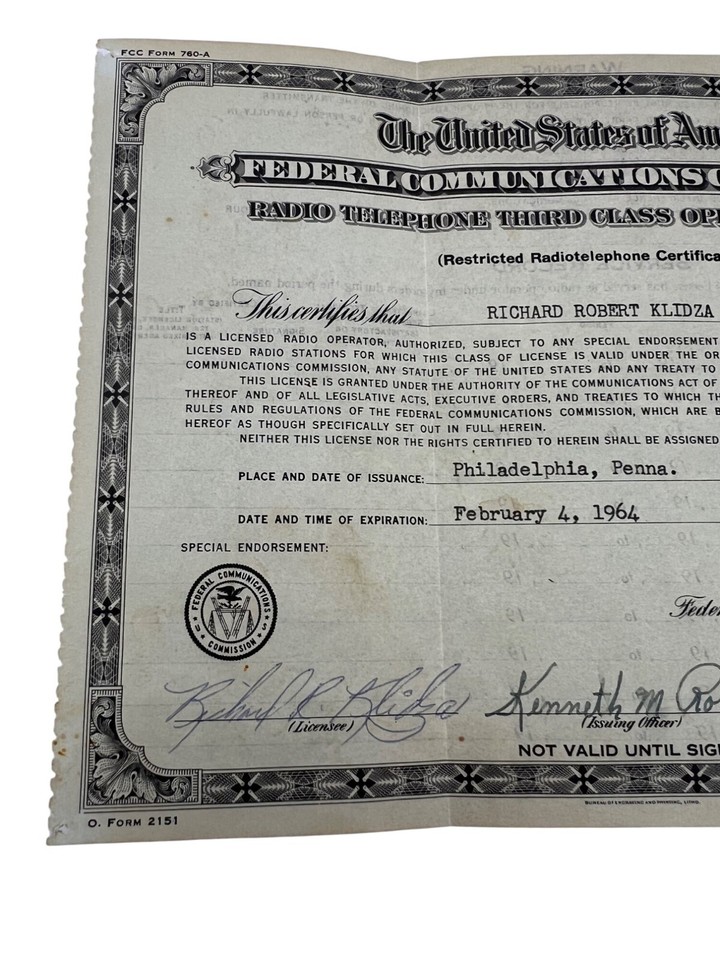 FCC FORM 760-A
The United States of Am
FEDERAL COMMUNICATIONS C
RADIO TELEPHONE THIRD CLASS OPE
(Restricted Radiotelephone Certifica
This certifies that RICHARD ROBERT KLIDZA
IS A LICENSED RADIO OPERATOR, AUTHORIZED, SUBJECT TO ANY SPECIAL ENDORSEMENT
LICENSED RADIO STATIONS FOR WHICH THIS CLASS OF LICENSE IS VALID UNDER THE OR
COMMUNICATIONS COMMISSION, ANY STATUTE OF THE UNITED STATES AND ANY TREATY TO
THIS LICENSE IS GRANTED UNDER THE AUTHORITY OF THE COMMUNICATIONS ACT OF
THEREOF AND OF ALL LEGISLATIVE ACTS, EXECUTIVE ORDERS, AND TREATIES TO WHICH TH
RULES AND REGULATIONS OF THE FEDERAL COMMUNICATIONS COMMISSION, WHICH ARE B
HEREOF AS THOUGH SPECIFICALLY SET OUT IN FULL HEREIN.
NEITHER THIS LICENSE NOR THE RIGHTS CERTIFIED TO HEREIN SHALL BE ASSIGNED
PLACE AND DATE OF ISSUANCE: Philadelphia, Penna.
DATE AND TIME OF EXPIRATION: February 4, 1964
SPECIAL ENDORSEMENT:
FEDERAL COMMUNICATIONS COMMISSION
Feder
Richard R. Klidza Kenneth M Ro
(Licensee) (Issuing Officer)
NOT VALID UNTIL SIG
BUREAU OF ENGRAVING AND PRINTING, LITHO.
O. FORM 2151